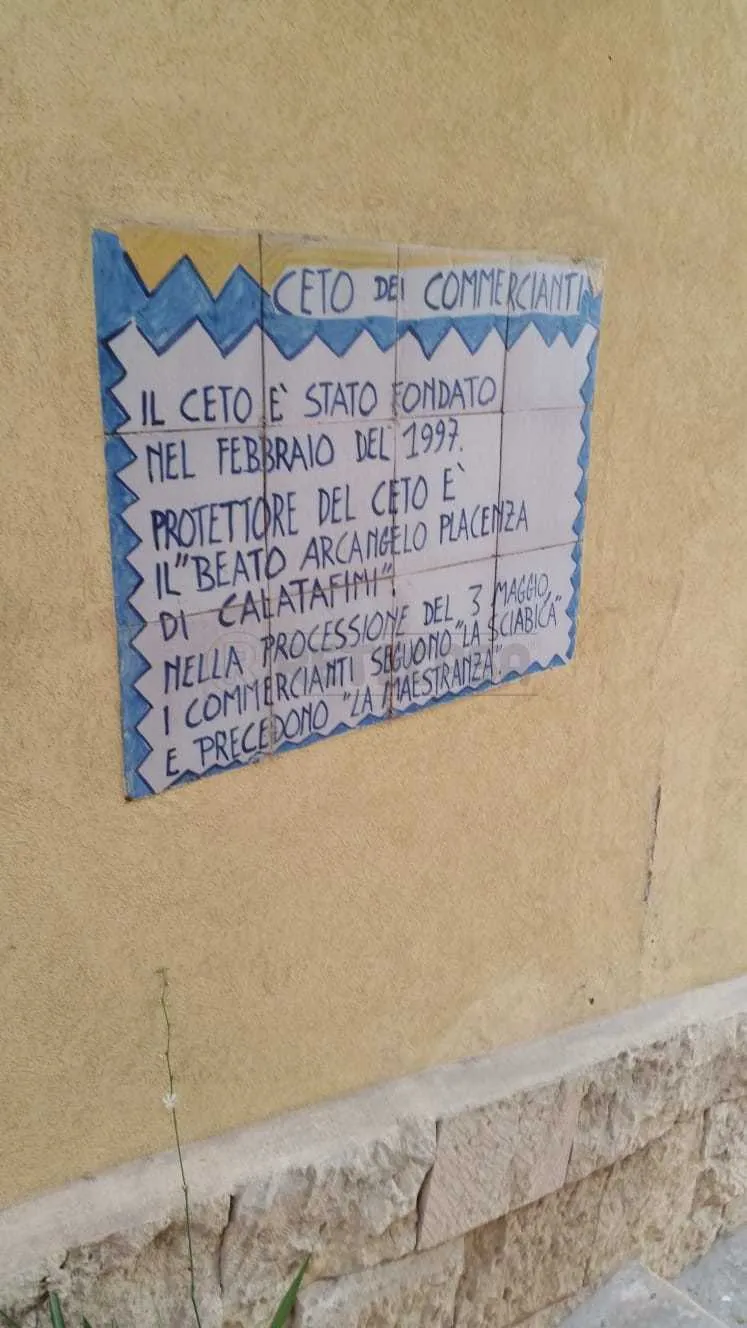 CETO DEI COMMERCIANTI
IL CETO È STATO FONDATO
NEL FEBBRAIO DEL 1997.
PROTETTORE DEL CETO È
IL "BEATO ARCANGELO PLACENZA
DI CALATAFIMI".
NELLA PROCESSIONE DEL 3 MAGGIO,
I COMMERCIANTI SEGUONO "LA SCIABICA"
E PRECEDONO "LA MAESTRANZA".